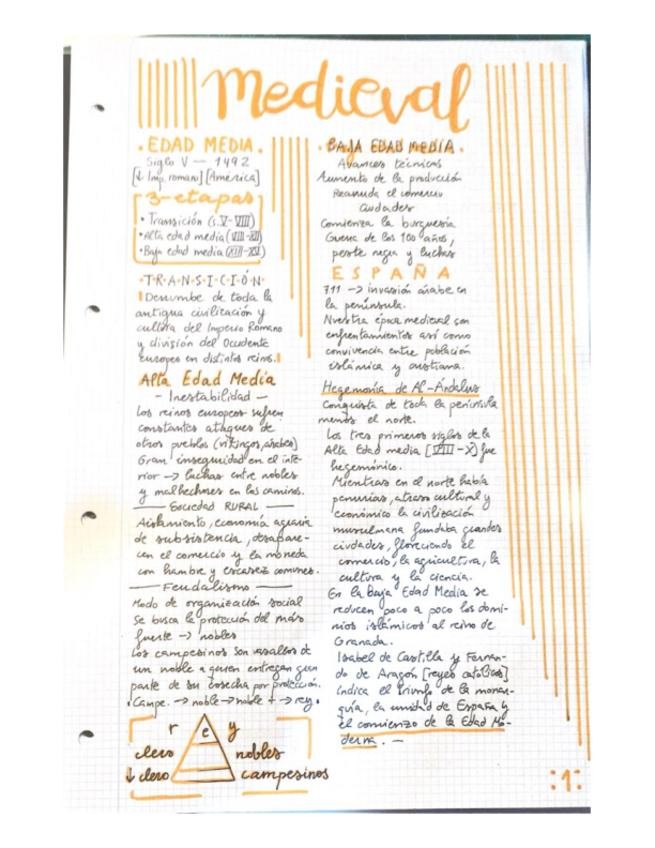 Medieval
· EDAD MEDIA ·
Siglo V — 1492
[↓ Imp. romano] [América]
3-etapas
• Transición (s.V-VIII)
• Alta edad media (VIII-XII)
• Baja edad media (XIII-XV)
·T·R·A·N·S·I·C·I·Ó·N·
Derrumbe de toda la
antigua civilización y
cultura del Imperio Romano
y división del Occidente
europeo en distintos reinos.
Alta Edad Media
- Inestabilidad -
Los reinos europeos sufren
constantes ataques de
otros pueblos (vikingos, árabes)
Gran inseguridad en el inte-
rior → luchas entre nobles
y malhechores en los caminos.
— Sociedad RURAL —
Aislamiento, economía agraria
de subsistencia, desapare-
cen el comercio y la moneda
con hambre y escasez comunes.
— Feudalismo —
Modo de organización social
Se busca la protección del más
fuerte → nobles
Los campesinos son vasallos de
un noble a quien entregan gran
parte de su cosecha por protección.
• Campe. → noble → noble + → rey •
r e y
clero nobles
↓ clero campesinos
· BAJA EDAD MEDIA ·
Avances técnicos
Aumento de la producción
Reanuda el comercio
Ciudades
Comienza la burguesía
Guerra de los 100 años,
peste negra y luchas
ESPAÑA
711 → invasión árabe en
la península.
Nuestra época medieval con
enfrentamientos así como
convivencia entre población
islámica y cristiana.
Hegemonía de Al-Ándalus
Conquista de toda la península
menos el norte.
Los tres primeros siglos de la
Alta Edad media [VIII-X] fue
hegemónico.
Mientras en el norte había
penurias, atraso cultural y
económico la civilización
musulmana fundaba grandes
ciudades, floreciendo el
comercio, la agricultura, la
cultura y la ciencia.
En la Baja Edad Media se
reducen poco a poco los domi-
nios islámicos al reino de
Granada.
Isabel de Castilla y Fernan-
do de Aragón [reyes católicos]
indica el triunfo de la monar-
quía, la unidad de España y
el comienzo de la Edad Mo-
derna. —
:1: